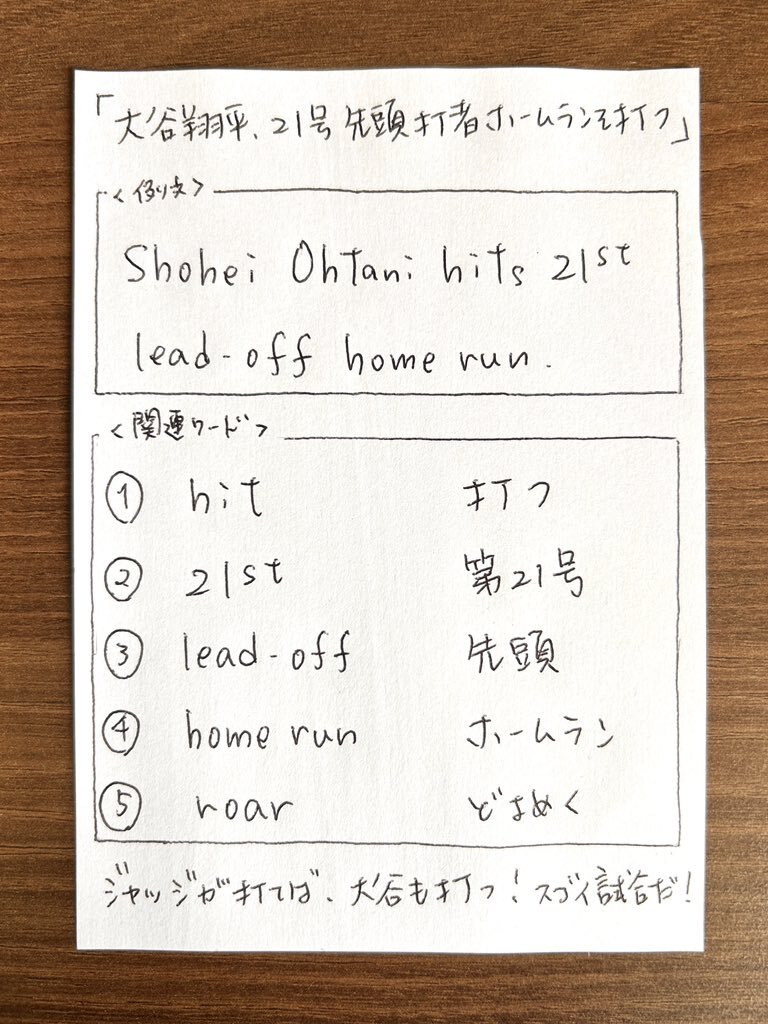 「大谷翔平、21号先頭打者ホームランを打つ」
<例文>
Shohei Ohtani hits 21st
lead-off home run.
<関連ワード>
① hit 打つ
② 21st 第21号
③ lead-off 先頭
④ home run ホームラン
⑤ roar どよめく
ジャッジが打てば、大谷も打つ！スゴイ試合だ！